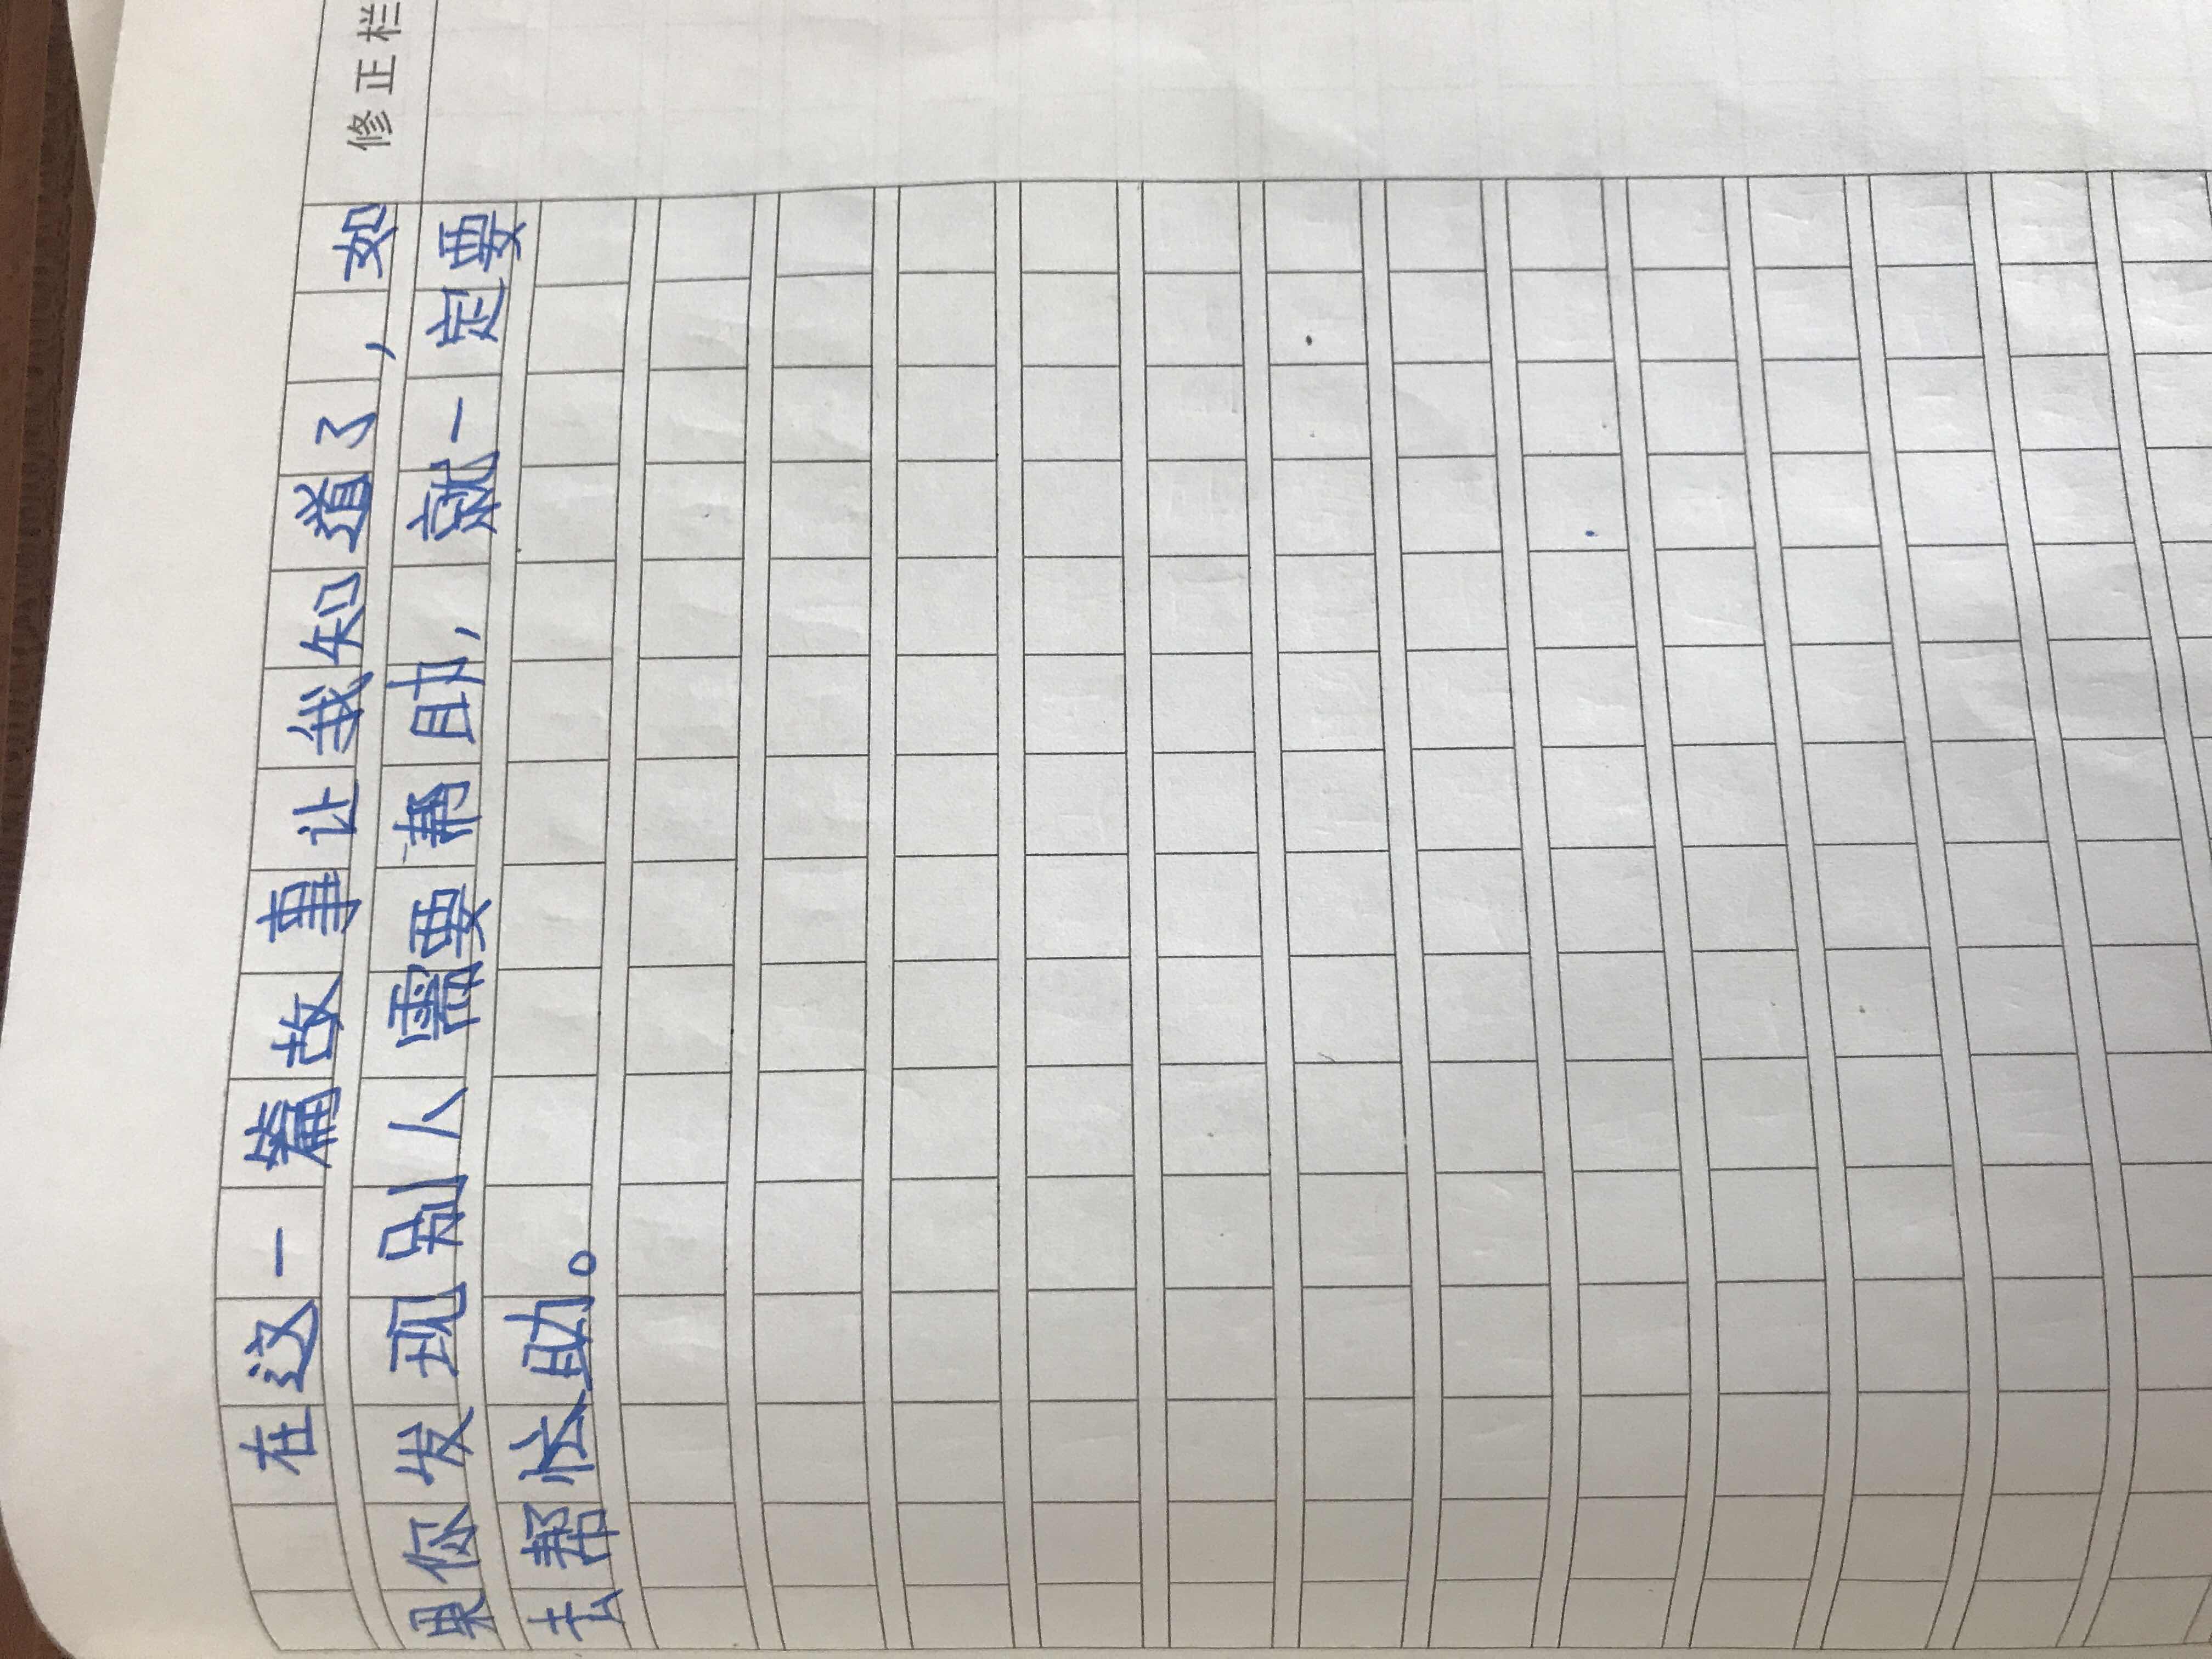 修正栏
在这一篇故事让我知道了，如
果你发现别人需要帮助，就一定要
去帮助。